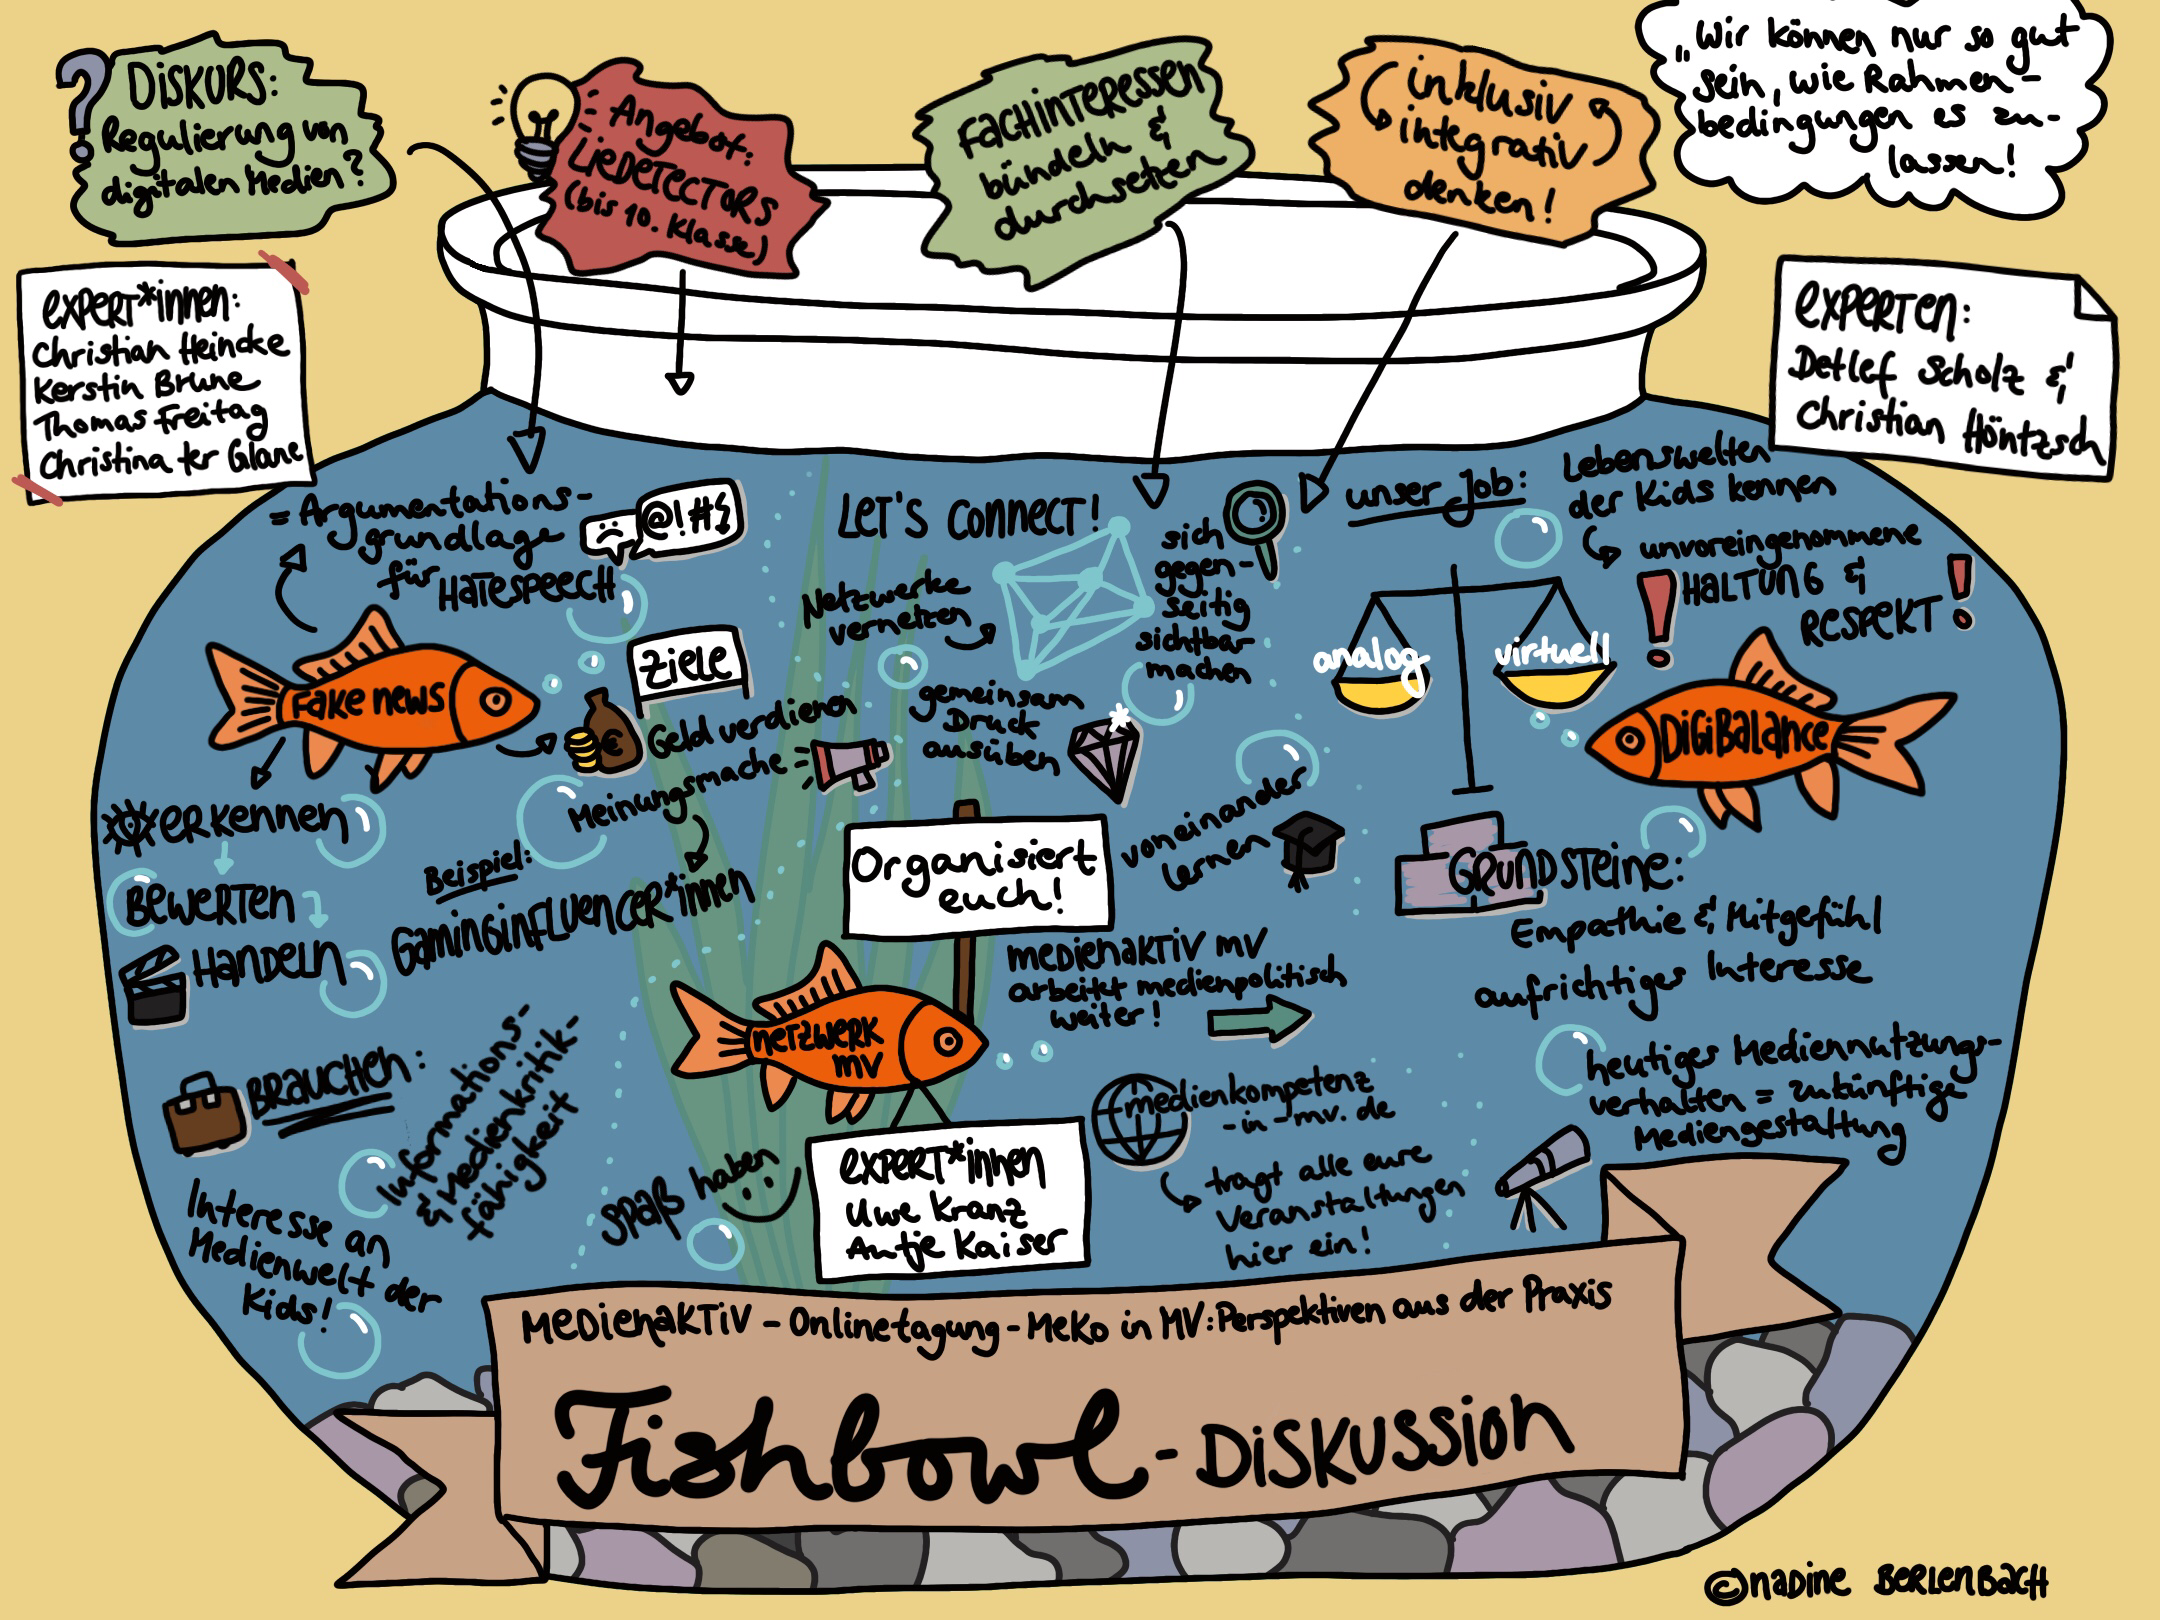 DISKURS:
Regulierung von
digitalen Medien?
Angebot:
LIEDETECTORS
(bis 10. Klasse)
FACHINTERESSEN
bündeln &
durchsetzen
inklusiv
integrativ
denken!
„Wir können nur so gut
sein, wie Rahmen-
bedingungen es zu-
lassen!
EXPERT*INNEN:
Christian Heincke
Kerstin Brune
Thomas Freitag
Christina ter Glane
EXPERTEN:
Detlef Scholz &
Christian Höntzsch
= Argumentations-
grundlage
für HATESPEECH
@!#§
Fake news
ZIELE
€ Geld verdienen
Meinungsmache
Beispiel:
GAMINGINFLUENCER*INNEN
ERKENNEN
BEWERTEN
HANDELN
BRAUCHEN:
Informations-
& Medienkritik-
fähigkeit
Interesse an
Medienwelt der
Kids!
LET'S CONNECT!
Netzwerke
vernetzen
sich
gegen-
seitig
sichtbar
machen
gemeinsam
Druck
ausüben
voneinander
lernen
Organisiert
euch!
NETZWERK
MV
MEDIENAKTIV MV
arbeitet medienpolitisch
weiter!
SPAß haben
EXPERT*INNEN
Uwe Kranz
Antje Kaiser
medienkompetenz
-in-mv.de
tragt alle eure
Veranstaltungen
hier ein!
unser Job:
Lebenswelten
der Kids kennen
unvoreingenommene
HALTUNG &
RESPEKT
analog
virtuell
DIGIBALANCE
GRUNDSTEINE:
Empathie & Mitgefühl
aufrichtiges Interesse
heutiges Mediennutzungs-
verhalten = zukünftige
Mediengestaltung
MEDIENAKTIV - Onlinetagung - MeKo in MV: Perspektiven aus der Praxis
Fishbowl - DISKUSSION
©NADINE BERLENBACH